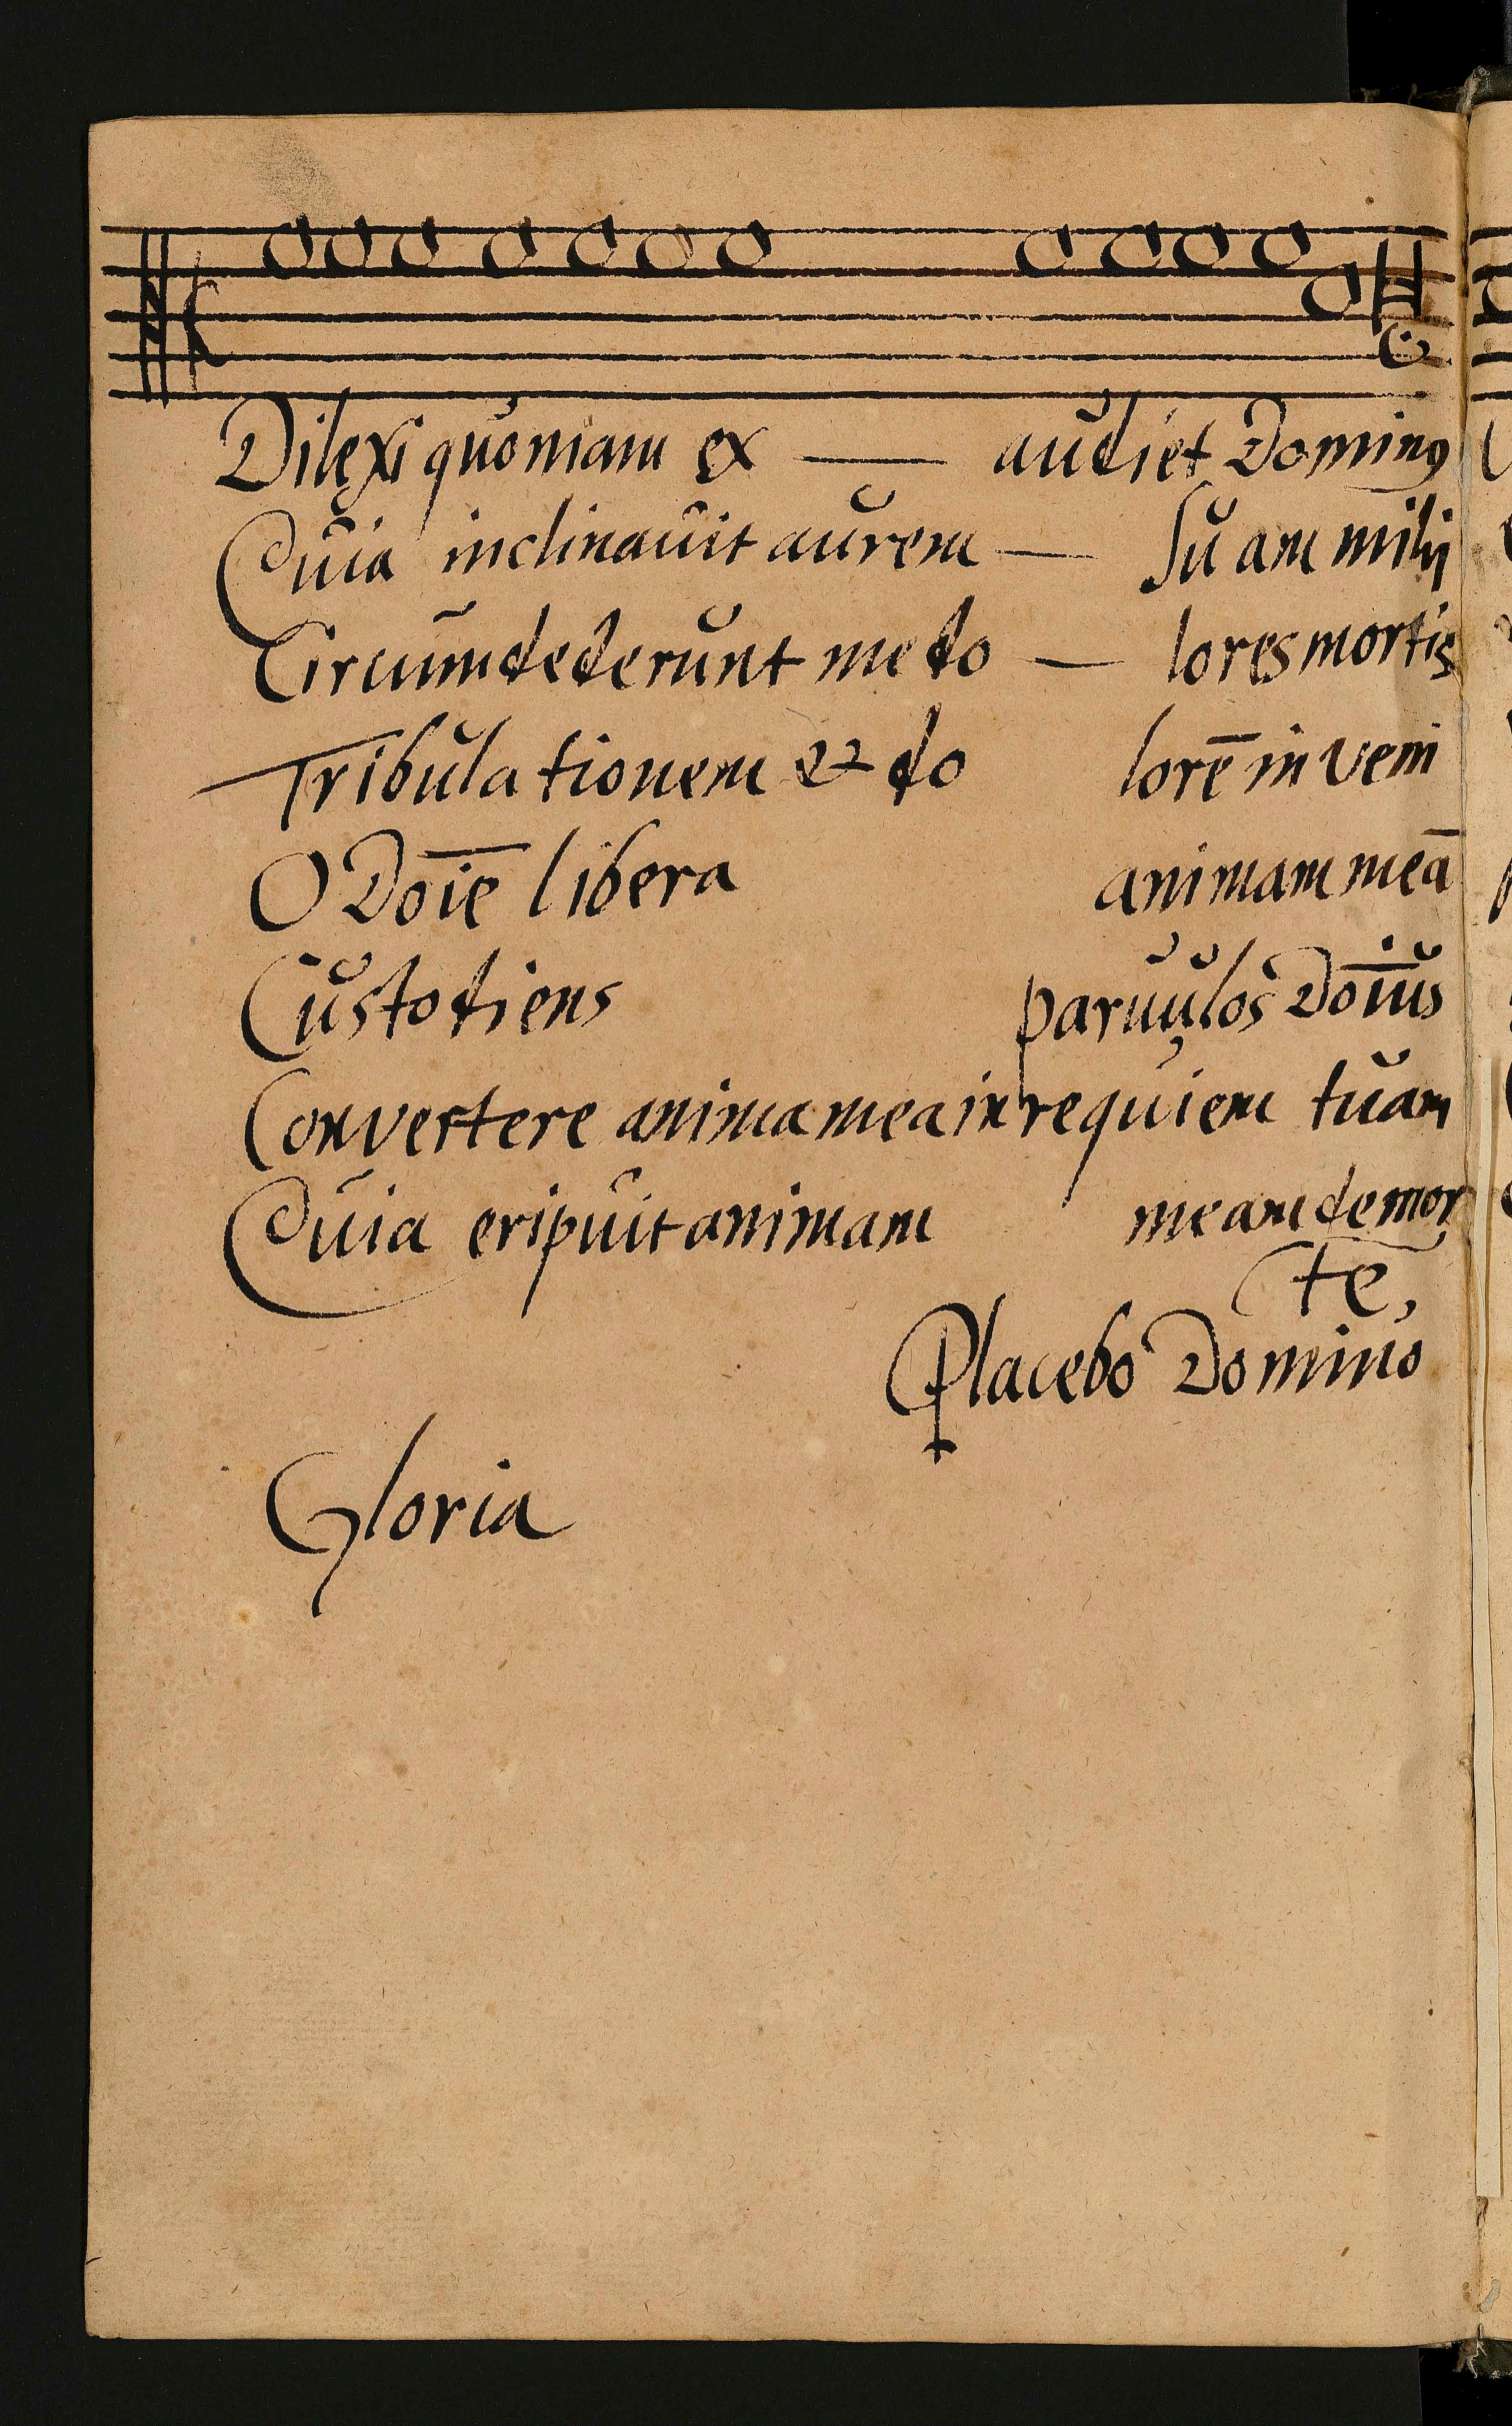 Dilexi quoniam ex — audiet Dominꝰ
Quia inclinauit aurem — suam mihi
Circumdederunt me do — lores mortis
Tribulationem & do lorē inveni
O Doīe libera animam meā
Custodiens paruulos Doīus
Convertere anima mea in requiem tuam
Quia eripuit animam meam de mor
te,
Placebo Domino
Gloria